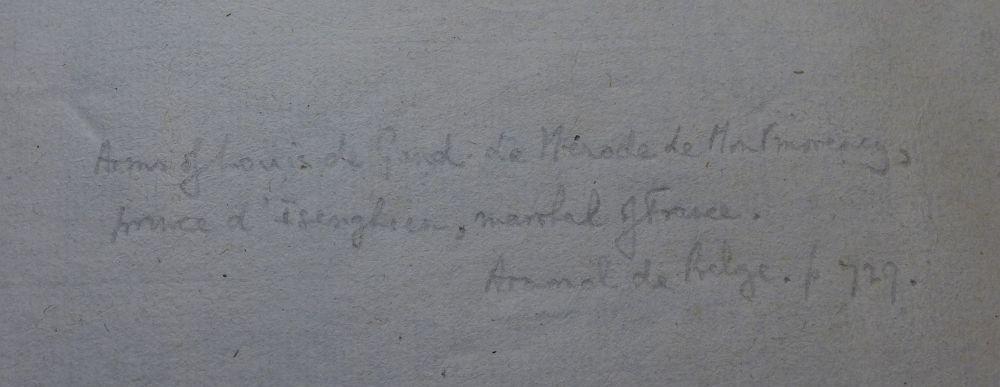 Arms of Louis de Gand de Mérode de Montmorency,
prince d'Isenghien, marshal of France.
Armorial de Belge. p 729.